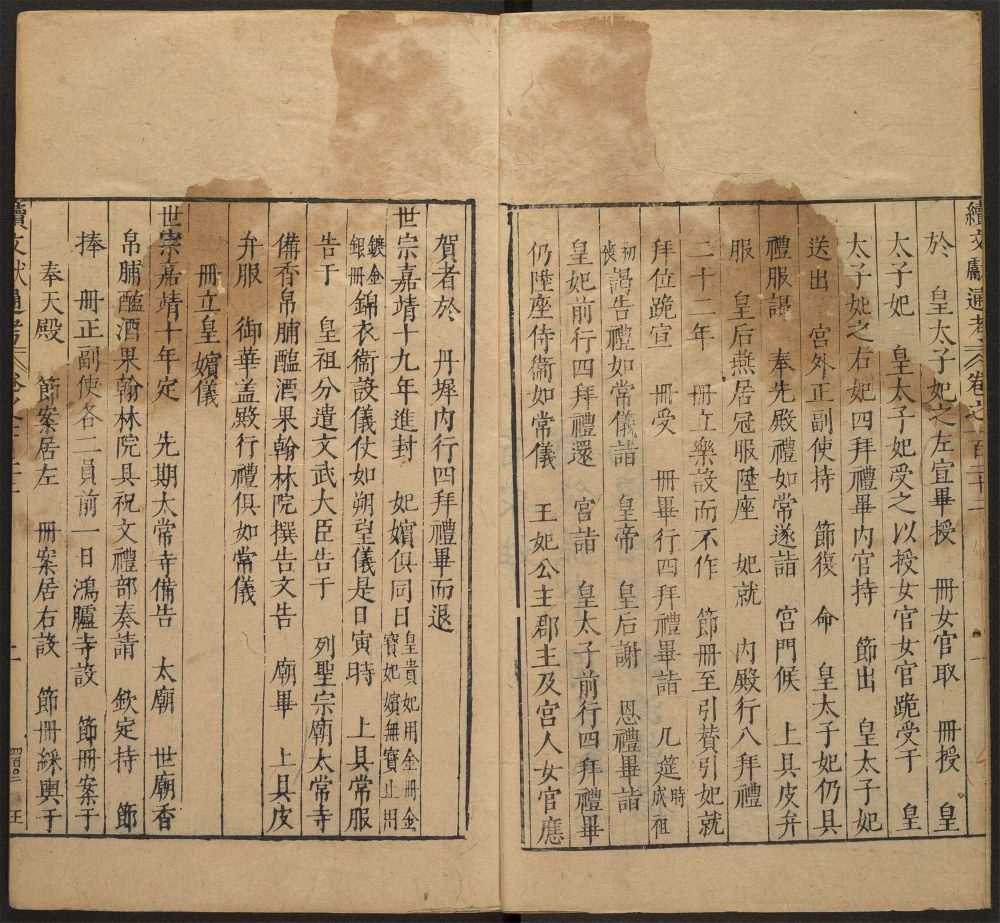 續文獻通考 卷之一百二十二
於 皇太子妃之左宣畢授 冊女官取 冊授 皇
太子妃 皇太子妃受之以授女官女官跪受于 皇
太子妃之右妃四拜禮畢內官持 節出 皇太子妃
送出 宮外正副使持 節復 命 皇太子妃仍具
禮服謁 奉先殿禮如常遂詣 宮門候 上具皮弁
服 皇后燕居冠服陞座 妃就 內殿行八拜禮
二十二年 冊立樂設而不作 節冊至引贊引妃就
拜位跪宣 冊受 冊畢行四拜禮畢詣 几筵時成祖
初喪謁告禮如常儀詣 皇帝 皇后謝 恩禮畢詣
皇妃前行四拜禮還 宮詣 皇太子前行四拜禮畢
仍陞座侍衛如常儀 王妃公主郡主及宮人女官應
賀者於 丹墀內行四拜禮畢而退
世宗嘉靖十九年進封 妃嬪俱同日皇貴妃用金冊金寶妃嬪無寶止用
鍍金銀冊錦衣衛設儀仗如朔望儀是日寅時 上具常服
告于 皇祖分遣文武大臣告于 列聖宗廟太常寺
備香帛脯醢酒果翰林院撰告文告 廟畢 上具皮
弁服 御華蓋殿行禮俱如常儀
冊立皇嬪儀
世宗嘉靖十年定 先期太常寺備告 太廟 世廟香
帛脯醢酒果翰林院具祝文禮部奏請 欽定持 節
捧 冊正副使各二員前一日鴻臚寺設 節冊案于
奉天殿 節案居左 冊案居右設 節冊綵輿于
續文獻通考 卷之一百二十二 二